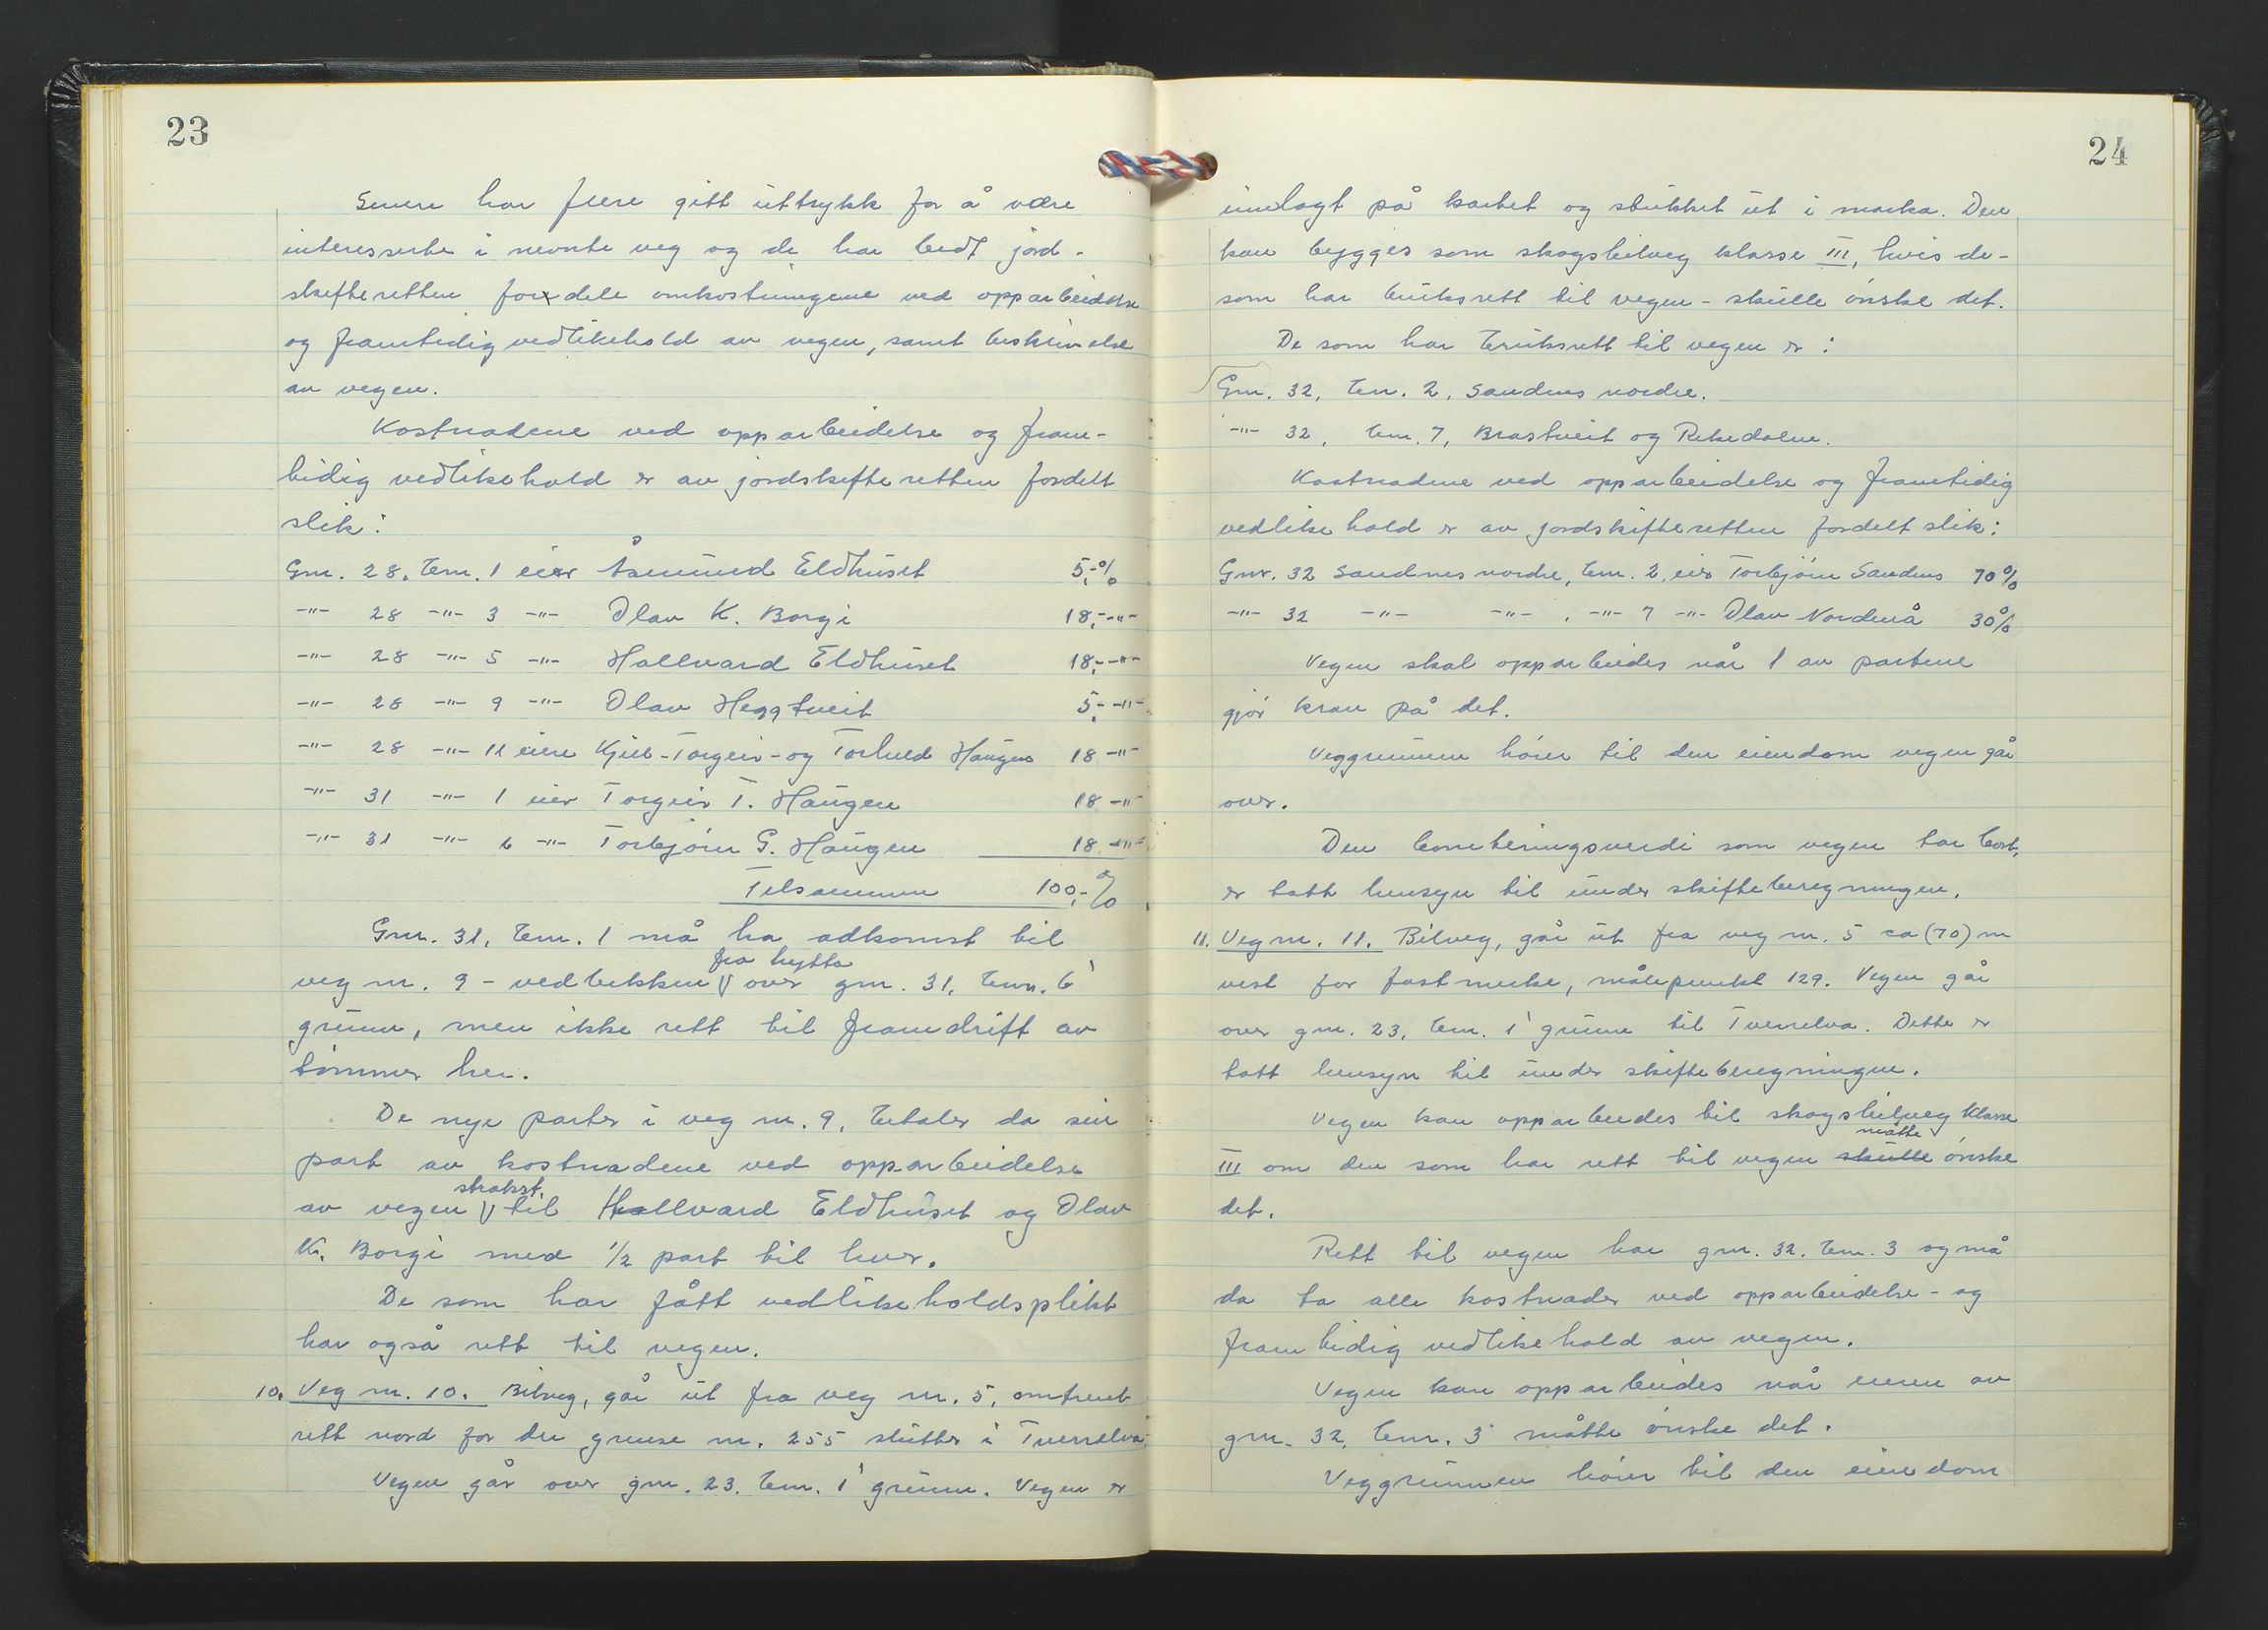 23
Senere har flere gitt uttrykk for å være
interesserte i nevnte veg og de har bedt jord-
skifteretten fordele omkostningene ved opparbeidelse
og framtidig vedlikehold av vegen, samt beskrivelse
av vegen.
Kostnadene ved opparbeidelse og fram-
tidig vedlikehold er av jordskifteretten fordelt
slik:
Gnr. 28, bnr. 1 eier Åsmund Eldhuset 5,-%
-"- 28 -"- 3 -"- Olav K. Borgi 18,- -"-
-"- 28 -"- 5 -"- Hallvard Eldhuset 18,- -"-
-"- 28 -"- 9 -"- Olav Heggtveit 5,- -"-
-"- 28 -"- 11 eiere Kjell-Torgeir- og Torhild Haugen 18 -"-
-"- 31 -"- 1 eier Torgeir T. Haugen 18 -"-
-"- 31 -"- 6 -"- Torbjørn G. Haugen 18 -"-
Tilsammen 100,-%
Gnr. 31, bnr. 1 må ha adkomst til
fra hytta
veg nr. 9 - ved bekken V over gnr. 31, bnr. 6'
grunn, men ikke rett til framdrift av
tømmer her.
De nye parter i veg nr. 9, betaler da sin
part av kostnadene ved opparbeidelse
strakst
av vegen V til Hallvard Eldhuset og Olav
K. Borgi med 1/2 part til hver.
De som har fått vedlikeholdsplikt
har også rett til vegen.
10. Veg nr. 10. Bilveg, går ut fra veg nr. 5, omtrent
rett nord for der grense nr. 255 slutter i Tverrelva.
Vegen går over gnr. 23, bnr. 1' grunn. Vegen er
24
innlagt på kartet og stukket ut i marka. Den
kan bygges som skogsbilveg klasse III, hvis de-
som har bruksrett til vegen - skulle ønske det.
De som har bruksrett til vegen er:
Gnr. 32, bnr. 2, Sandnes nordre.
-"- 32, bnr. 7, Brastveit og Rekedalen.
Kostnadene ved opparbeidelse og framtidig
vedlikehold er av jordskifteretten fordelt slik:
Gnr. 32 Sandnes nordre, bnr. 2, eier Torbjørn Sandnes 70%
-"- 32 -"- -"- , -"- 7 -"- Olav Nordenå 30%
Vegen skal opparbeides når 1 av partene
gjør krav på det.
Veggrunnen hører til den eiendom vegen går
over.
Den boniteringsverdi som vegen tar bort,
er tatt hensyn til under skifteberegningen.
11. Veg nr. 11. Bilveg, går ut fra veg nr. 5 ca (70) m
vest for fastmerke, målepunkt 129. Vegen går
over gnr. 23, bnr. 1' grunn til Tverrelva. Dette er
tatt hensyn til under skifteberegningen.
Vegen kan opparbeides til skogsbilveg klasse
måtte
III om den som har rett til vegen skulle ønske
det.
Rett til vegen har gnr. 32, bnr. 3 og må
da ta alle kostnader ved opparbeidelse - og
framtidig vedlikehold av vegen.
Vegen kan opparbeides når eieren av
gnr. 32, bnr. 3 måtte ønske det.
Veggrunnen hører til den eiendom